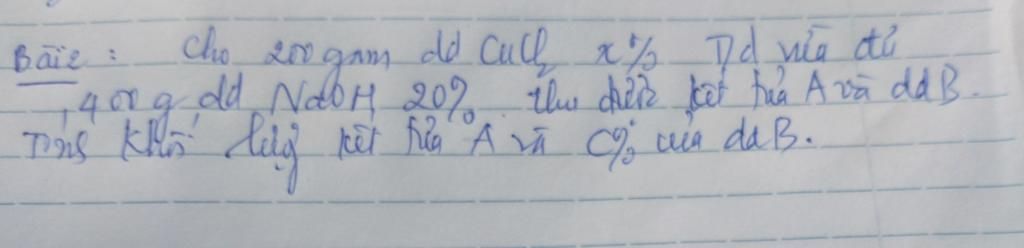 Bài 2: Cho 200 gam dd CuCl2 x% Td vừa đủ
400 g dd NaOH 20% thu được kết tủa A và ddB.
Tính khối lượng kết tủa A và C% của ddB.